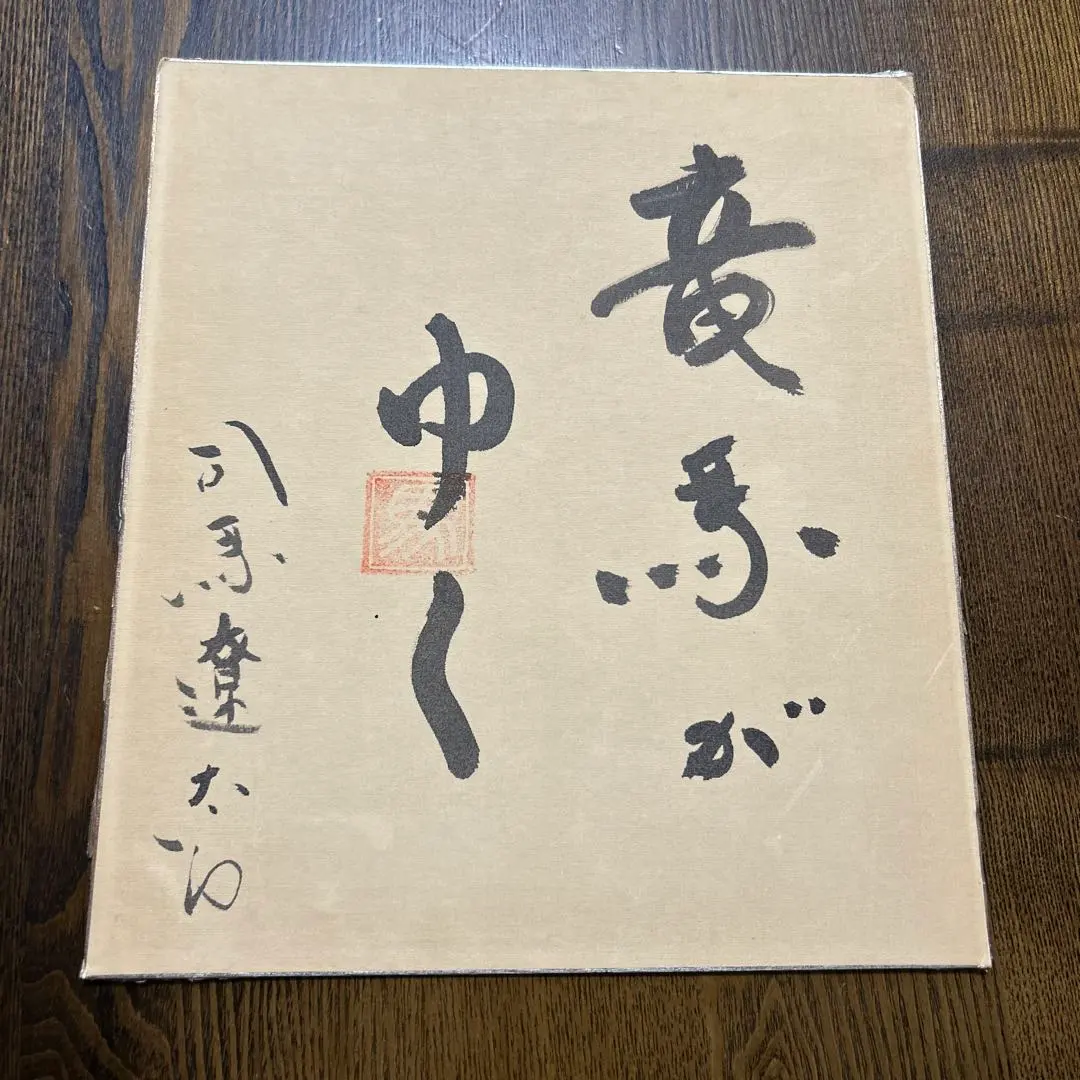 竜馬が
ゆく
司馬遼太郎